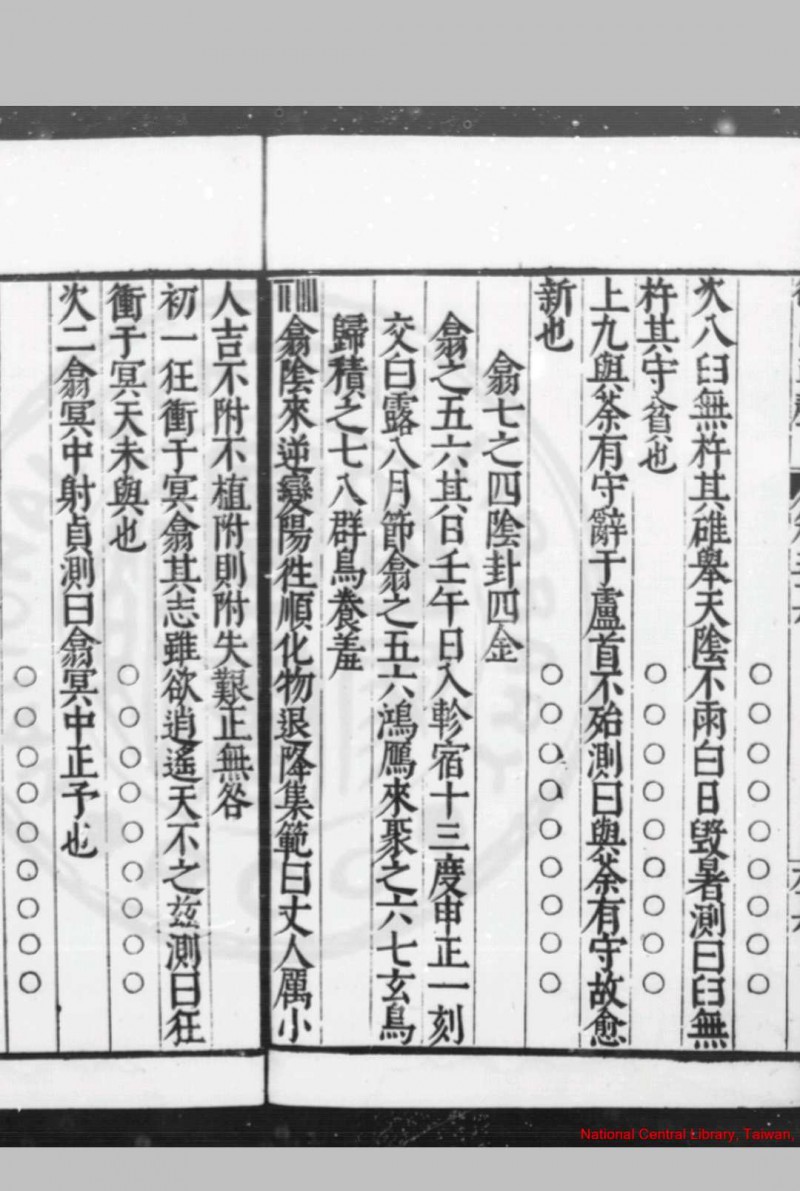 次八臼無杵其碓舉天陰不雨白日毀暑測曰臼無
杵其守貧也
○○○○○○○○○
上九與荼有守辭于盧首不殆測曰與荼有守故愈
新也
○○○○○○○○○
翕七之四陰卦四金
翕之五六其日壬午日入軫宿十三度申正一刻
交白露八月節翕之五六鴻鴈來聚之六七玄鳥
歸積之七八群鳥養羞
翕陰來逆變陽徃順化物退降集範曰丈人厲小
人吉不附不植附則附失艱正無咎
初一狂衝于冥翕其志雖欲逍遙天不之玆測曰狂
衝于冥天未與也
○○○○○○○○○
次二翕冥中射貞測曰翕冥中正予也
○○○○○○○○○
National Central Library, Taiwan,